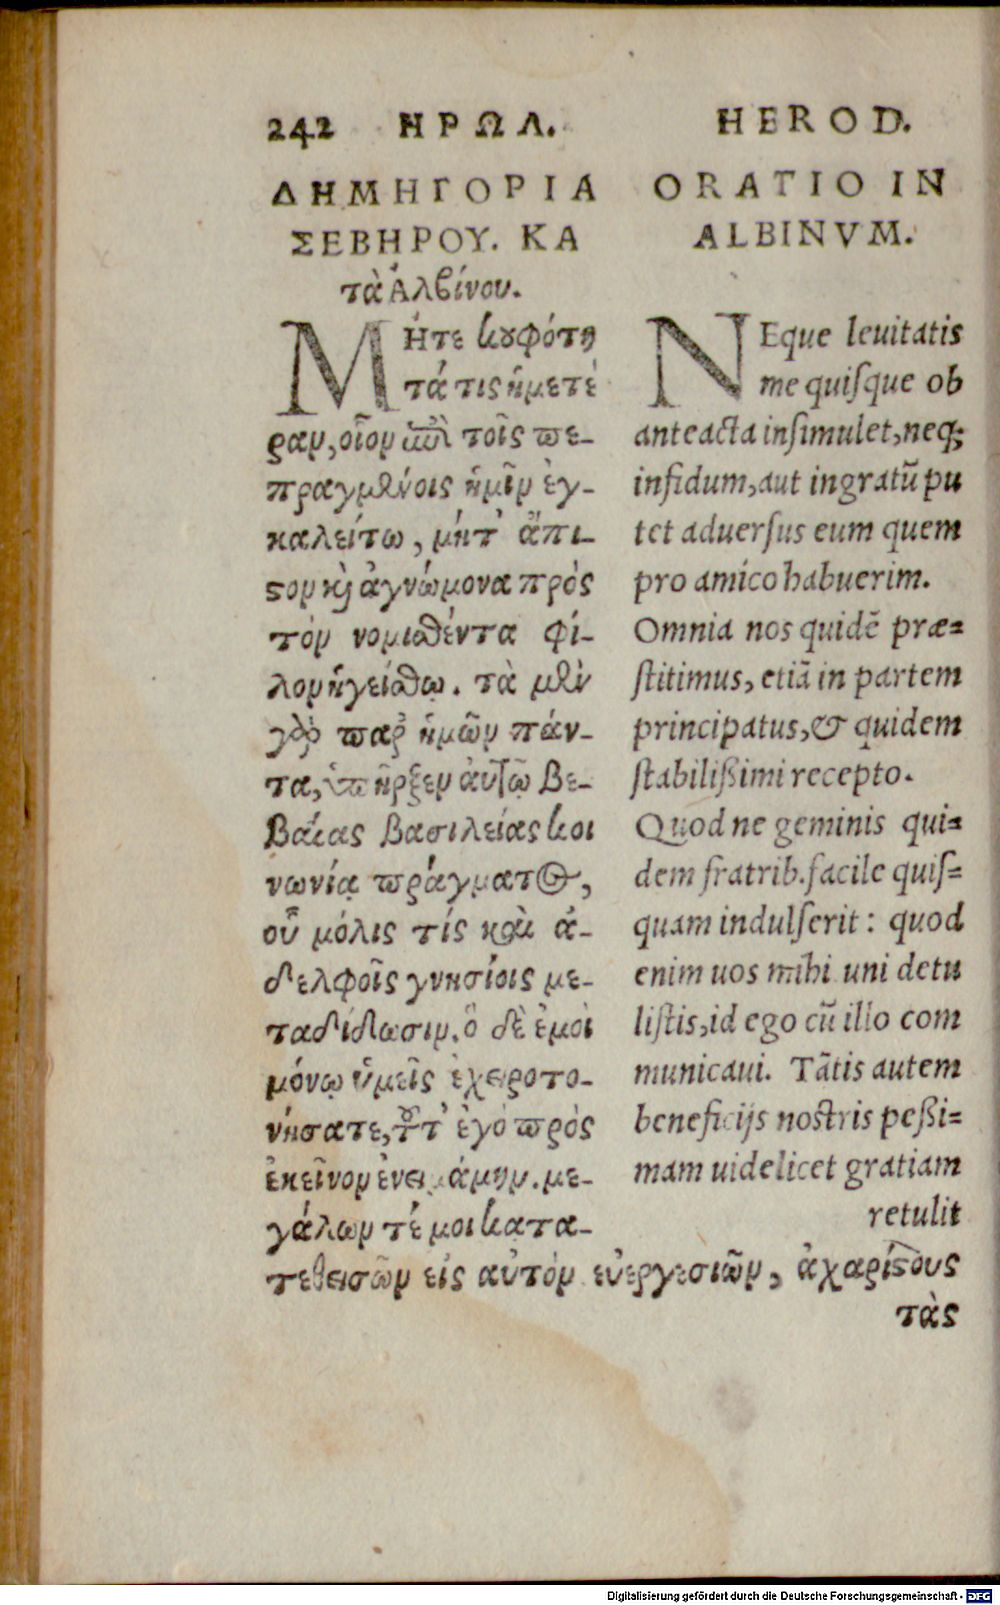 242 ΗΡΩΔ.
ΔΗΜΗΓΟΡΙΑ
ΣΕΒΗΡΟΥ. ΚΑ
τὰ Ἀλβίνου.
ΜΗτε κουφότη
τά τις ἡμετέ
ραν, οἷον ἐπὶ τοῖς πε-
πραγμένοις ἡμῖν ἐγ-
καλείτω, μήτ' ἄπι-
στον καὶ ἀγνώμονα πρὸς
τὸν νομισθέντα φί-
λον ἡγείσθω. τὰ μὲν
γὰρ παρ' ἡμῶν πάν-
τα, ὑπῆρξεν αὐτῷ βε-
βαίας βασιλείας κοι
νωνίᾳ πράγματος,
οὗ μόλις τίς καὶ ἀ-
δελφοῖς γνησίοις με-
ταδίδωσιν. ὃ δὲ ἐμοὶ
μόνῳ ὑμεῖς ἐχειροτο-
νήσατε, τοῦτ' ἐγὸ πρὸς
ἐκεῖνον ἐνειμάμην. με-
γάλων τέ μοι κατα-
τεθεισῶν εἰς αὐτὸν εὐεργεσιῶν, ἀχαρίστους
τὰς
HEROD.
ORATIO IN
ALBINVM.
NEque leuitatis
me quisque ob
anteacta insimulet, neq;
infidum, aut ingratũ pu
tet aduersus eum quem
pro amico habuerim.
Omnia nos quidẽ præ=
stitimus, etiã in partem
principatus, & quidem
stabilißimi recepto.
Quod ne geminis qui=
dem fratrib. facile quis=
quam indulserit: quod
enim uos mihi uni detu
listis, id ego cũ illo com
municaui. Tãtis autem
beneficijs nostris peßi=
mam uidelicet gratiam
retulit
Digitalisierung gefördert durch die Deutsche Forschungsgemeinschaft - DFG